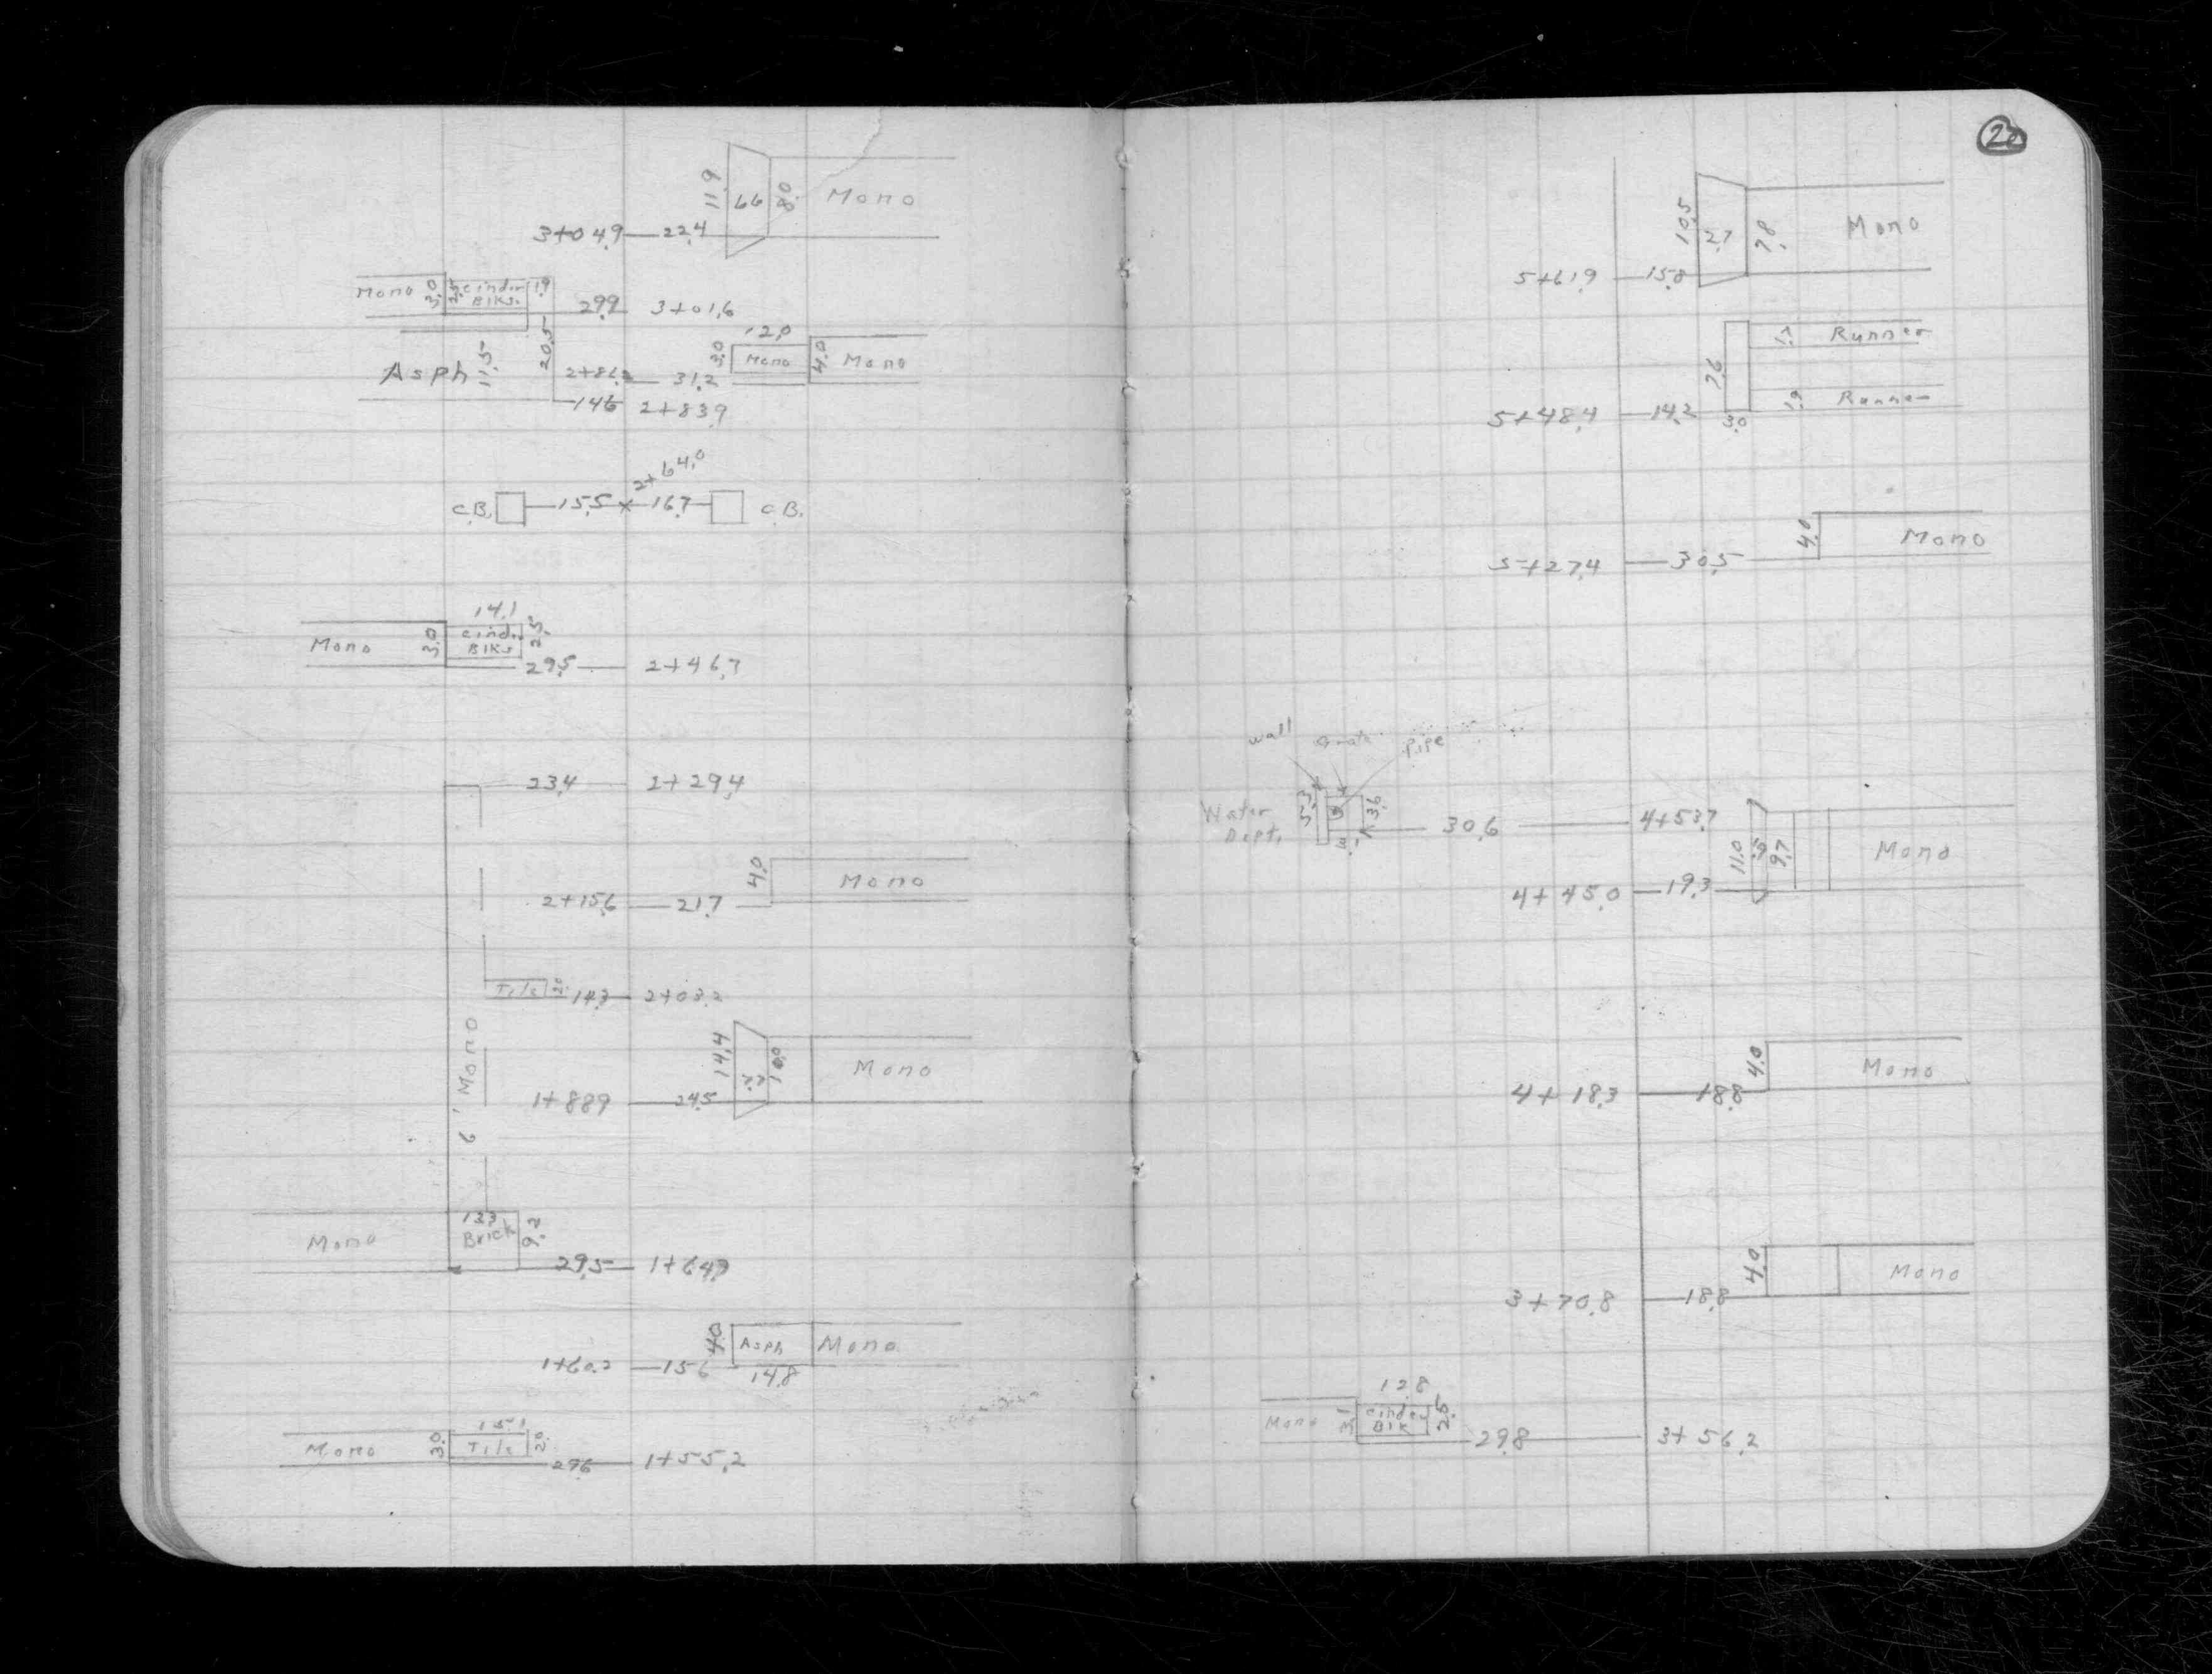 11.9 6.6 8.0 Mono
3+04.9 22.4
Mono 3.0 2.5 Cinder 1.9
Blks.
29.9 3+01.6
12.0
20.5 3.0 Mono 4.0 Mono
Asph 11.5 31.2
14.6 2+83.9
2+64.0
C.B. 15.5 16.7 C.B.
14.1
Mono 3.0 Cinder 2.5
Blks
29.5 2+46.7
23.4 2+29.4
4.0 Mono
2+15.6 21.7
Tile 2.0 14.3 2+03.2
6' Mono
14.4 7.7 10.0 Mono
1+88.9 24.5
13.3
Mono Brick 9.2
29.5 1+64.9
4.0 Asph Mono
1+60.2 15.6 14.8
15.1
Mono 3.0 Tile 2.0
29.6 1+55.2
20
10.5 2.7 7.8 Mono
5+61.9 15.8
1.7 Runner
7.6
1.9 Runner
5+48.4 14.2 3.0
4.0 Mono
5+27.4 30.5
wall Grate pipe
Water 5.3 3.6
Dept. 30.6 4+53.7
11.0 9.7 Mono
4+45.0 19.3
4.0 Mono
4+18.3 18.8
4.0 Mono
3+70.8 18.8
12.8
Mono 3.1 Cinder 2.5
Blk
29.8 3+56.2